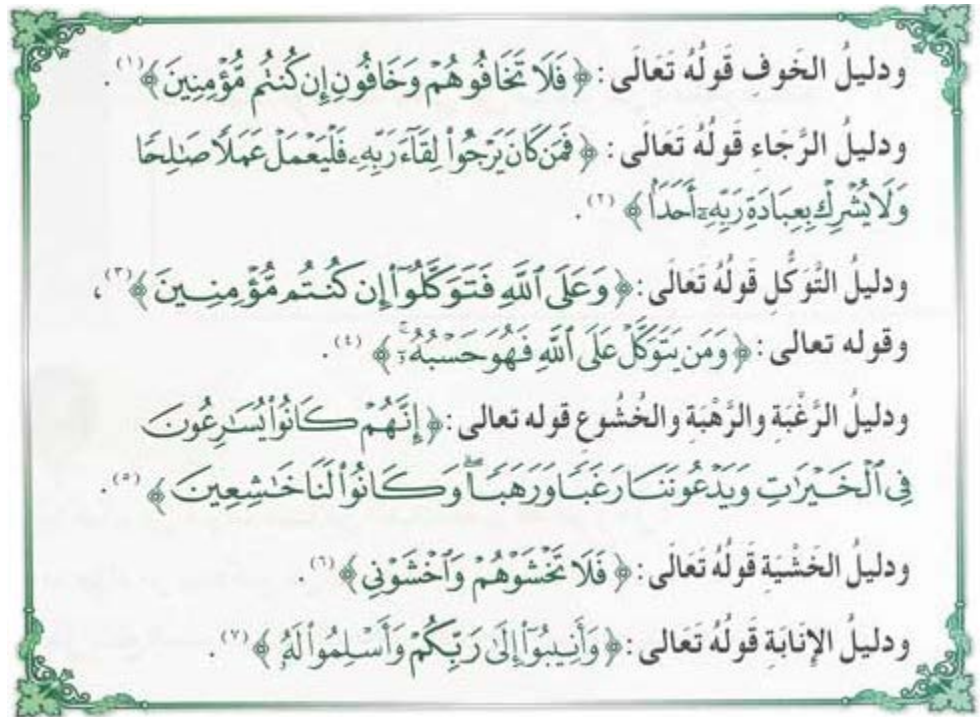 ودليلُ الخَوفِ قَولُهُ تَعَالَى : ﴿ فَلَا تَخَافُوهُمْ وَخَافُونِ إِن كُنتُم مُّؤْمِنِينَ ﴾ (١) .
ودليلُ الرَّجَاءِ قَولُهُ تَعَالَى : ﴿ فَمَن كَانَ يَرْجُوا۟ لِقَآءَ رَبِّهِۦ فَلْيَعْمَلْ عَمَلًا صَـٰلِحًا
وَلَا يُشْرِكْ بِعِبَادَةِ رَبِّهِۦٓ أَحَدَۢا ﴾ (٢) .
ودليلُ التَّوَكُّلِ قَولُهُ تَعَالَى : ﴿ وَعَلَى ٱللَّهِ فَتَوَكَّلُوٓا۟ إِن كُنتُم مُّؤْمِنِينَ ﴾ (٣) ،
وقوله تعالى : ﴿ وَمَن يَتَوَكَّلْ عَلَى ٱللَّهِ فَهُوَ حَسْبُهُۥٓ ۚ ﴾ (٤) .
ودليلُ الرَّغْبَةِ والرَّهْبَةِ والخُشُوعِ قوله تعالى : ﴿ إِنَّهُمْ كَانُوا۟ يُسَـٰرِعُونَ
فِى ٱلْخَيْرَٰتِ وَيَدْعُونَنَا رَغَبًا وَرَهَبًا ۖ وَكَانُوا۟ لَنَا خَـٰشِعِينَ ﴾ (٥) .
ودليلُ الخَشْيَةِ قَولُهُ تَعَالَى : ﴿ فَلَا تَخْشَوْهُمْ وَٱخْشَوْنِى ﴾ (٦) .
ودليلُ الإِنَابَةِ قَولُهُ تَعَالى : ﴿ وَأَنِيبُوٓا۟ إِلَىٰ رَبِّكُمْ وَأَسْلِمُوا۟ لَهُۥ ﴾ (٧) .